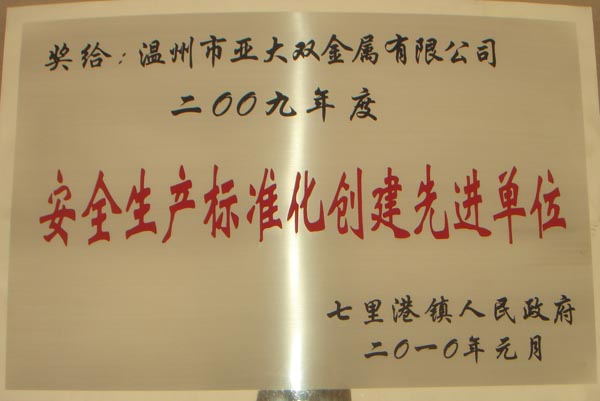 奖给：温州市亚大双金属有限公司
二〇〇九年度
安全生产标准化创建先进单位
七里港镇人民政府
二〇一〇年元月